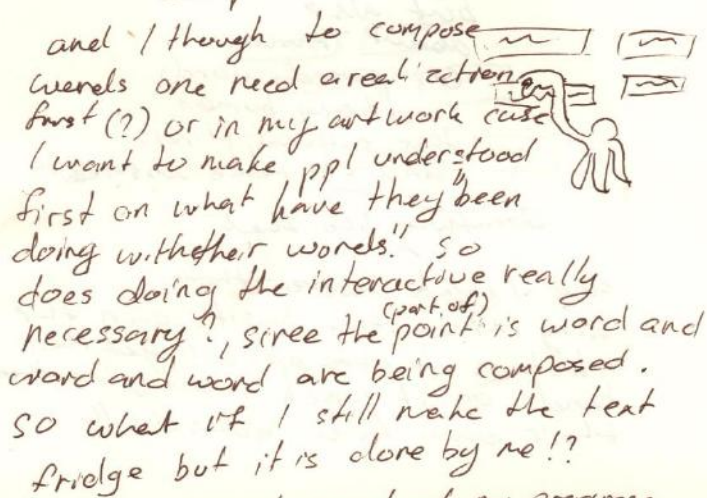 and I though to compose
words one need a realization
first (?) or in my artwork case
I want to make ppl understood
first on what have they "been
doing with their words." so
does doing the interactive really
necessary?, since the (part of) point is word and
word and word are being composed.
so what if I still make the text
fridge but it is done by me!?